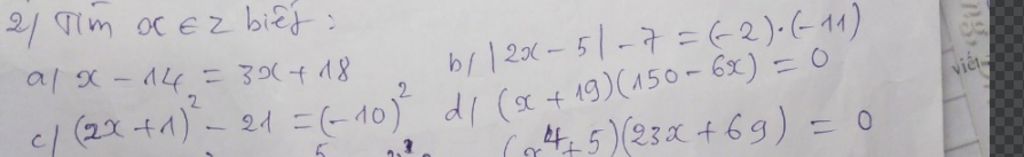 2/ Tìm x ∈ Z biết :
a/ x - 14 = 3x + 18
b/ |2x - 5| - 7 = (-2).(-11)
c/ (2x + 1)² - 21 = (-10)²
d/ (x + 19)(150 - 6x) = 0
(x⁴ + 5)(23x + 69) = 0
viết